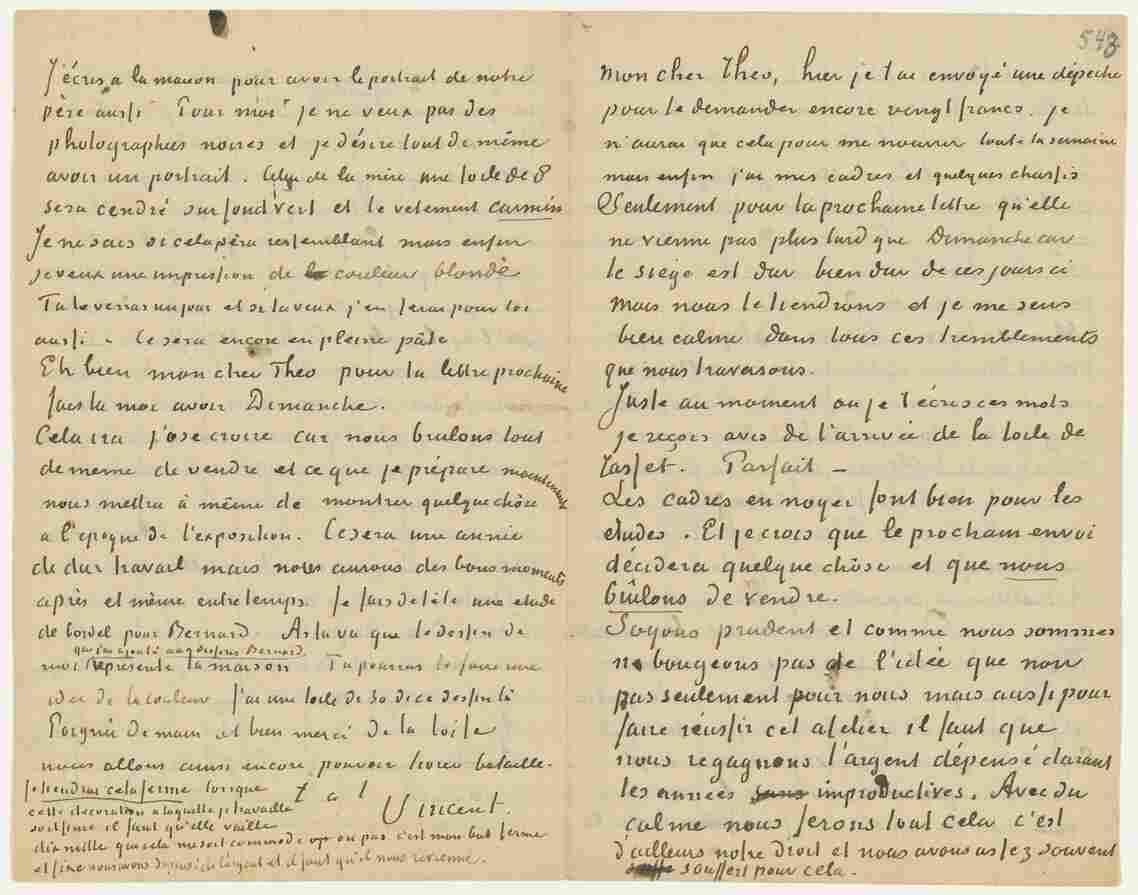 J'écris a la maison pour avoir le portrait de notre
père aussi Pour moi je ne veux pas des
photographies noires et je désire tout de même
avoir un portrait. Celui de la mère une toile de 8
sera cendré sur fond vert et le vetement carmin
Je ne sais si cela sera ressemblant mais enfin
je veux une impression de couleur blonde
Tu le verras un jour et si tu veux j'en ferai pour toi
aussi – Ce sera encore en pleine pâte
Eh bien mon cher Theo pour ta lettre prochaine
fais la moi avoir Dimanche.
Cela ira j'ose croire car nous brulons tout
de meme de vendre et ce que je prépare maintenant
nous mettra à même de montrer quelque chôse
a l'epoque de l'exposition. Ce sera une année
de dur travail mais nous aurons des bons moments
après et même entretemps. Je fais de tête une etude
de bordel pour Bernard. As tu vu que le dessin de
que j'ai ajouté aux dessins Bernard
moi represente la maison Tu pourras te faire une
idee de la couleur j'ai une toile de 30 de ce dessin là
Poignée de main et bien merci de la toile
nous allons ainsi encore pouvoir livrer bataille.
t. à t.
Vincent.
Je tiendrai cela ferme lorsque
cette décoration a laquelle je travaille
soit finie il faut qu'elle vaille
dix mille que cela me soit commode ou pas c'est mon but ferme
et fixe nous avons depensé de l'argent et il faut qu'il nous revienne.
543
Mon cher Theo, hier je t'ai envoyé une dépeche
pour te demander encore vengt francs. je
n'aurai que cela pour me nourrir toute la semaine
mais enfin j'ai mes cadres et quelques chassis
Seulement pour ta prochaine lettre qu'elle
ne vienne pas plus tard que Dimanche car
le siège est dur bien dur de ces jours ci
Mais nous le tiendrons et je me sens
bien calme dans tous ces tremblements
que nous traversons.
Juste au moment ou je t'écris ces mots
je reçois avis de l'arrivée de la toile de
Tasset. Parfait –
Les cadres en noyer font bien pour les
etudes. Et je crois que le prochain envoi
décidera quelque chôse et que nous
brûlons de vendre.
Soyons prudent et comme nous sommes
ne bougeons pas de l'idée que non
pas seulement pour nous mais aussi pour
faire réussir cet atelier il faut que
nous regagnons l'argent dépensé durant
les années improductives. Avec du
calme nous ferons tout cela c'est
d'ailleurs notre droit et nous avons assez souvent
souffert pour cela.